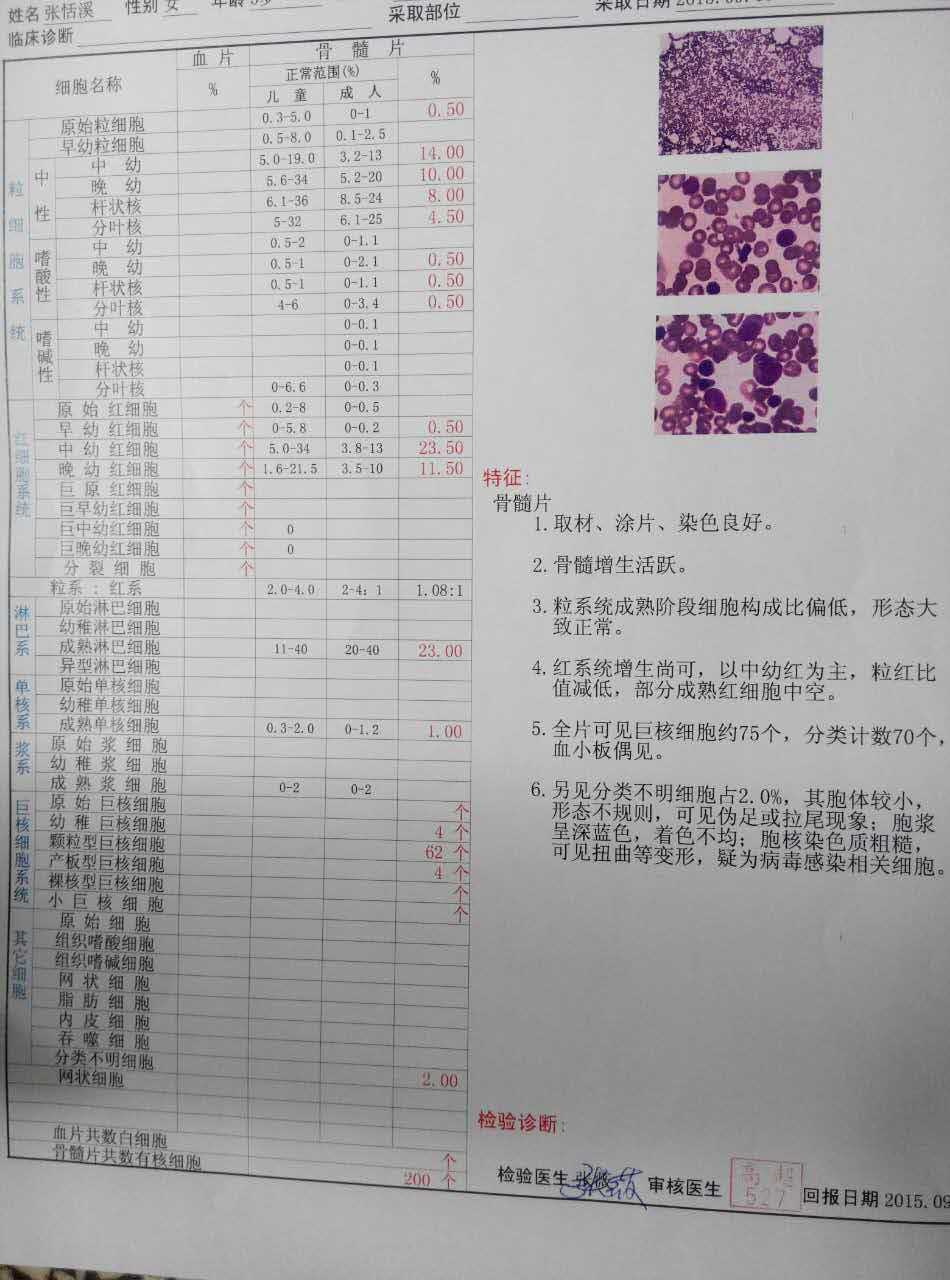 姓名 张恬溪 性别 女 年龄 采取部位 采取日期
临床诊断
细胞名称 血片 骨髓片
% 正常范围(%) %
儿童 成人
粒细胞系统
原始粒细胞 0.3-5.0 0-1 0.50
早幼粒细胞 0.5-8.0 0.1-2.5
中性
中幼 5.0-19.0 3.2-13 14.00
晚幼 5.6-34 5.2-20 10.00
杆状核 6.1-36 8.5-24 8.00
分叶核 5-32 6.1-25 4.50
嗜酸性
中幼 0.5-2 0-1.1
晚幼 0.5-1 0-2.1 0.50
杆状核 0.5-1 0-1.1 0.50
分叶核 4-6 0-3.4 0.50
嗜碱性
中幼 0-0.1
晚幼 0-0.1
杆状核 0-0.1
分叶核 0-6.6 0-0.3
红细胞系统
原始红细胞 个 0.2-8 0-0.5
早幼红细胞 个 0-5.8 0-0.2 0.50
中幼红细胞 个 5.0-34 3.8-13 23.50
晚幼红细胞 个 1.6-21.5 3.5-10 11.50
巨原红细胞 个
巨早幼红细胞 个
巨中幼红细胞 个 0
巨晚幼红细胞 个 0
分裂细胞 个
粒系：红系 2.0-4.0 2-4：1 1.08:1
淋巴系
原始淋巴细胞
幼稚淋巴细胞
成熟淋巴细胞 11-40 20-40 23.00
异型淋巴细胞
单核系
原始单核细胞
幼稚单核细胞
成熟单核细胞 0.3-2.0 0-1.2 1.00
浆系
原始浆细胞
幼稚浆细胞
成熟浆细胞 0-2 0-2
巨核细胞系统
原始巨核细胞 个
幼稚巨核细胞 4 个
颗粒型巨核细胞 62 个
产板型巨核细胞 4 个
裸核型巨核细胞 个
小巨核细胞 个
其它细胞
原始细胞
组织嗜酸细胞
组织嗜碱细胞
网状细胞
脂肪细胞
内皮细胞
吞噬细胞
分类不明细胞
网状细胞 2.00
血片共数白细胞 个
骨髓片共数有核细胞 200 个
特征：
骨髓片
1. 取材、涂片、染色良好。
2. 骨髓增生活跃。
3. 粒系统成熟阶段细胞构成比偏低，形态大
致正常。
4. 红系统增生尚可，以中幼红为主，粒红比
值减低，部分成熟红细胞中空。
5. 全片可见巨核细胞约75个，分类计数70个，
血小板偶见。
6. 另见分类不明细胞占2.0%，其胞体较小，
形态不规则，可见伪足或拉尾现象；胞浆
呈深蓝色，着色不均；胞核染色质粗糙，
可见扭曲等变形，疑为病毒感染相关细胞。
检验诊断：
检验医生 审核医生 高超 527 回报日期 2015.09